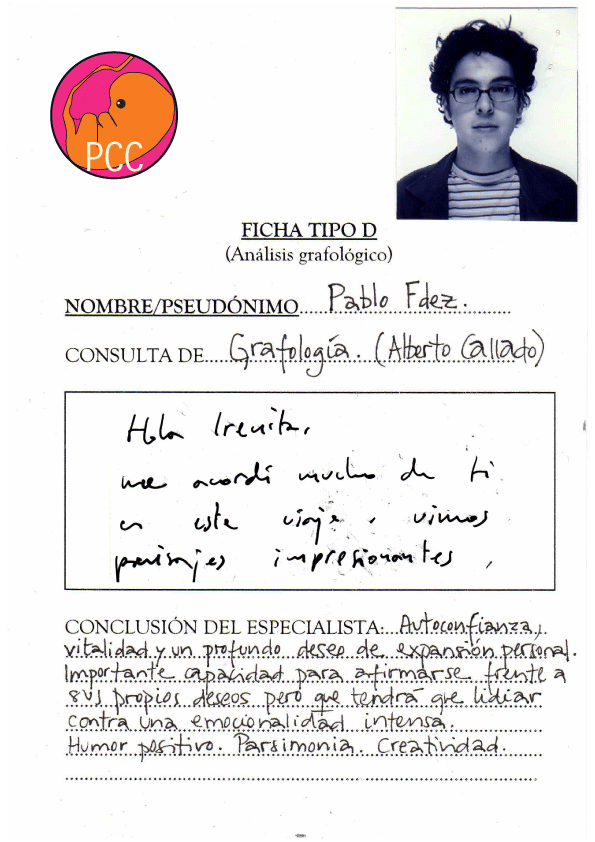 PCC
FICHA TIPO D
(Análisis grafológico)
NOMBRE/PSEUDÓNIMO Pablo Fdez.
CONSULTA DE Grafología. (Alberto Callado)
Hola Irenita,
me acordé mucho de ti
en este viaje, vimos
paisajes impresionantes,
CONCLUSIÓN DEL ESPECIALISTA: Autoconfianza,
vitalidad y un profundo deseo de expansión personal.
Importante capacidad para afirmarse frente a
sus propios deseos pero que tendrá que lidiar
contra una emocionalidad intensa.
Humor positivo. Parsimonia. Creatividad.